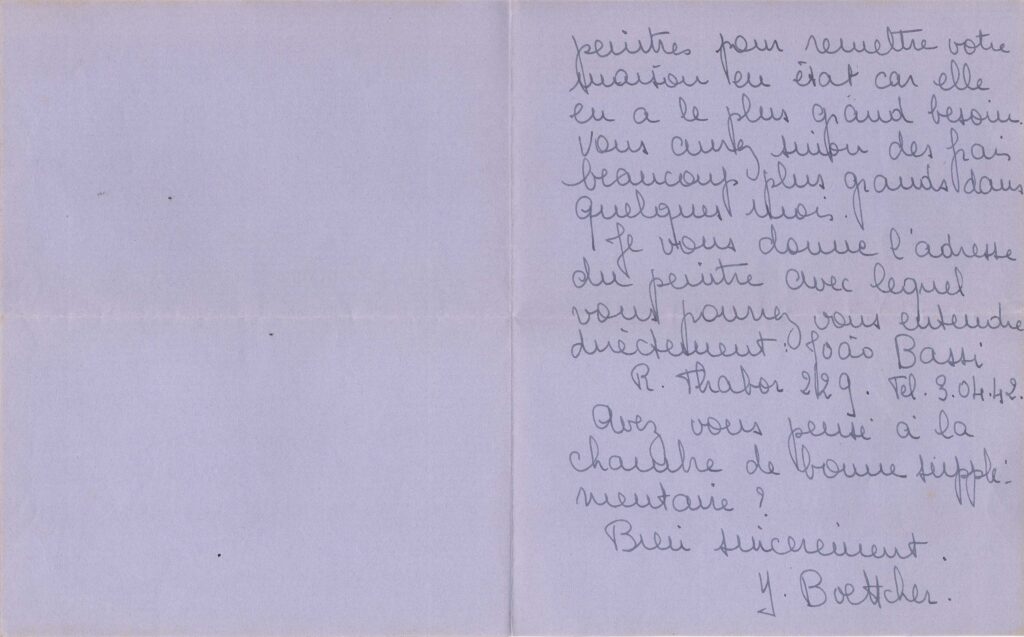 peintres pour remettre votre
maison en état car elle
en a le plus grand besoin.
Vous aurez sinon des frais
beaucoup plus grands dans
quelques mois.
Je vous donne l'adresse
du peintre avec lequel
vous pourrez vous entendre
directement : João Bassi
R. Thabor 229. Tel. 3.04.42.
Avez vous pensé à la
chambre de bonne supplé-
mentaire ?
Bien sincèrement.
Y. Boettcher.